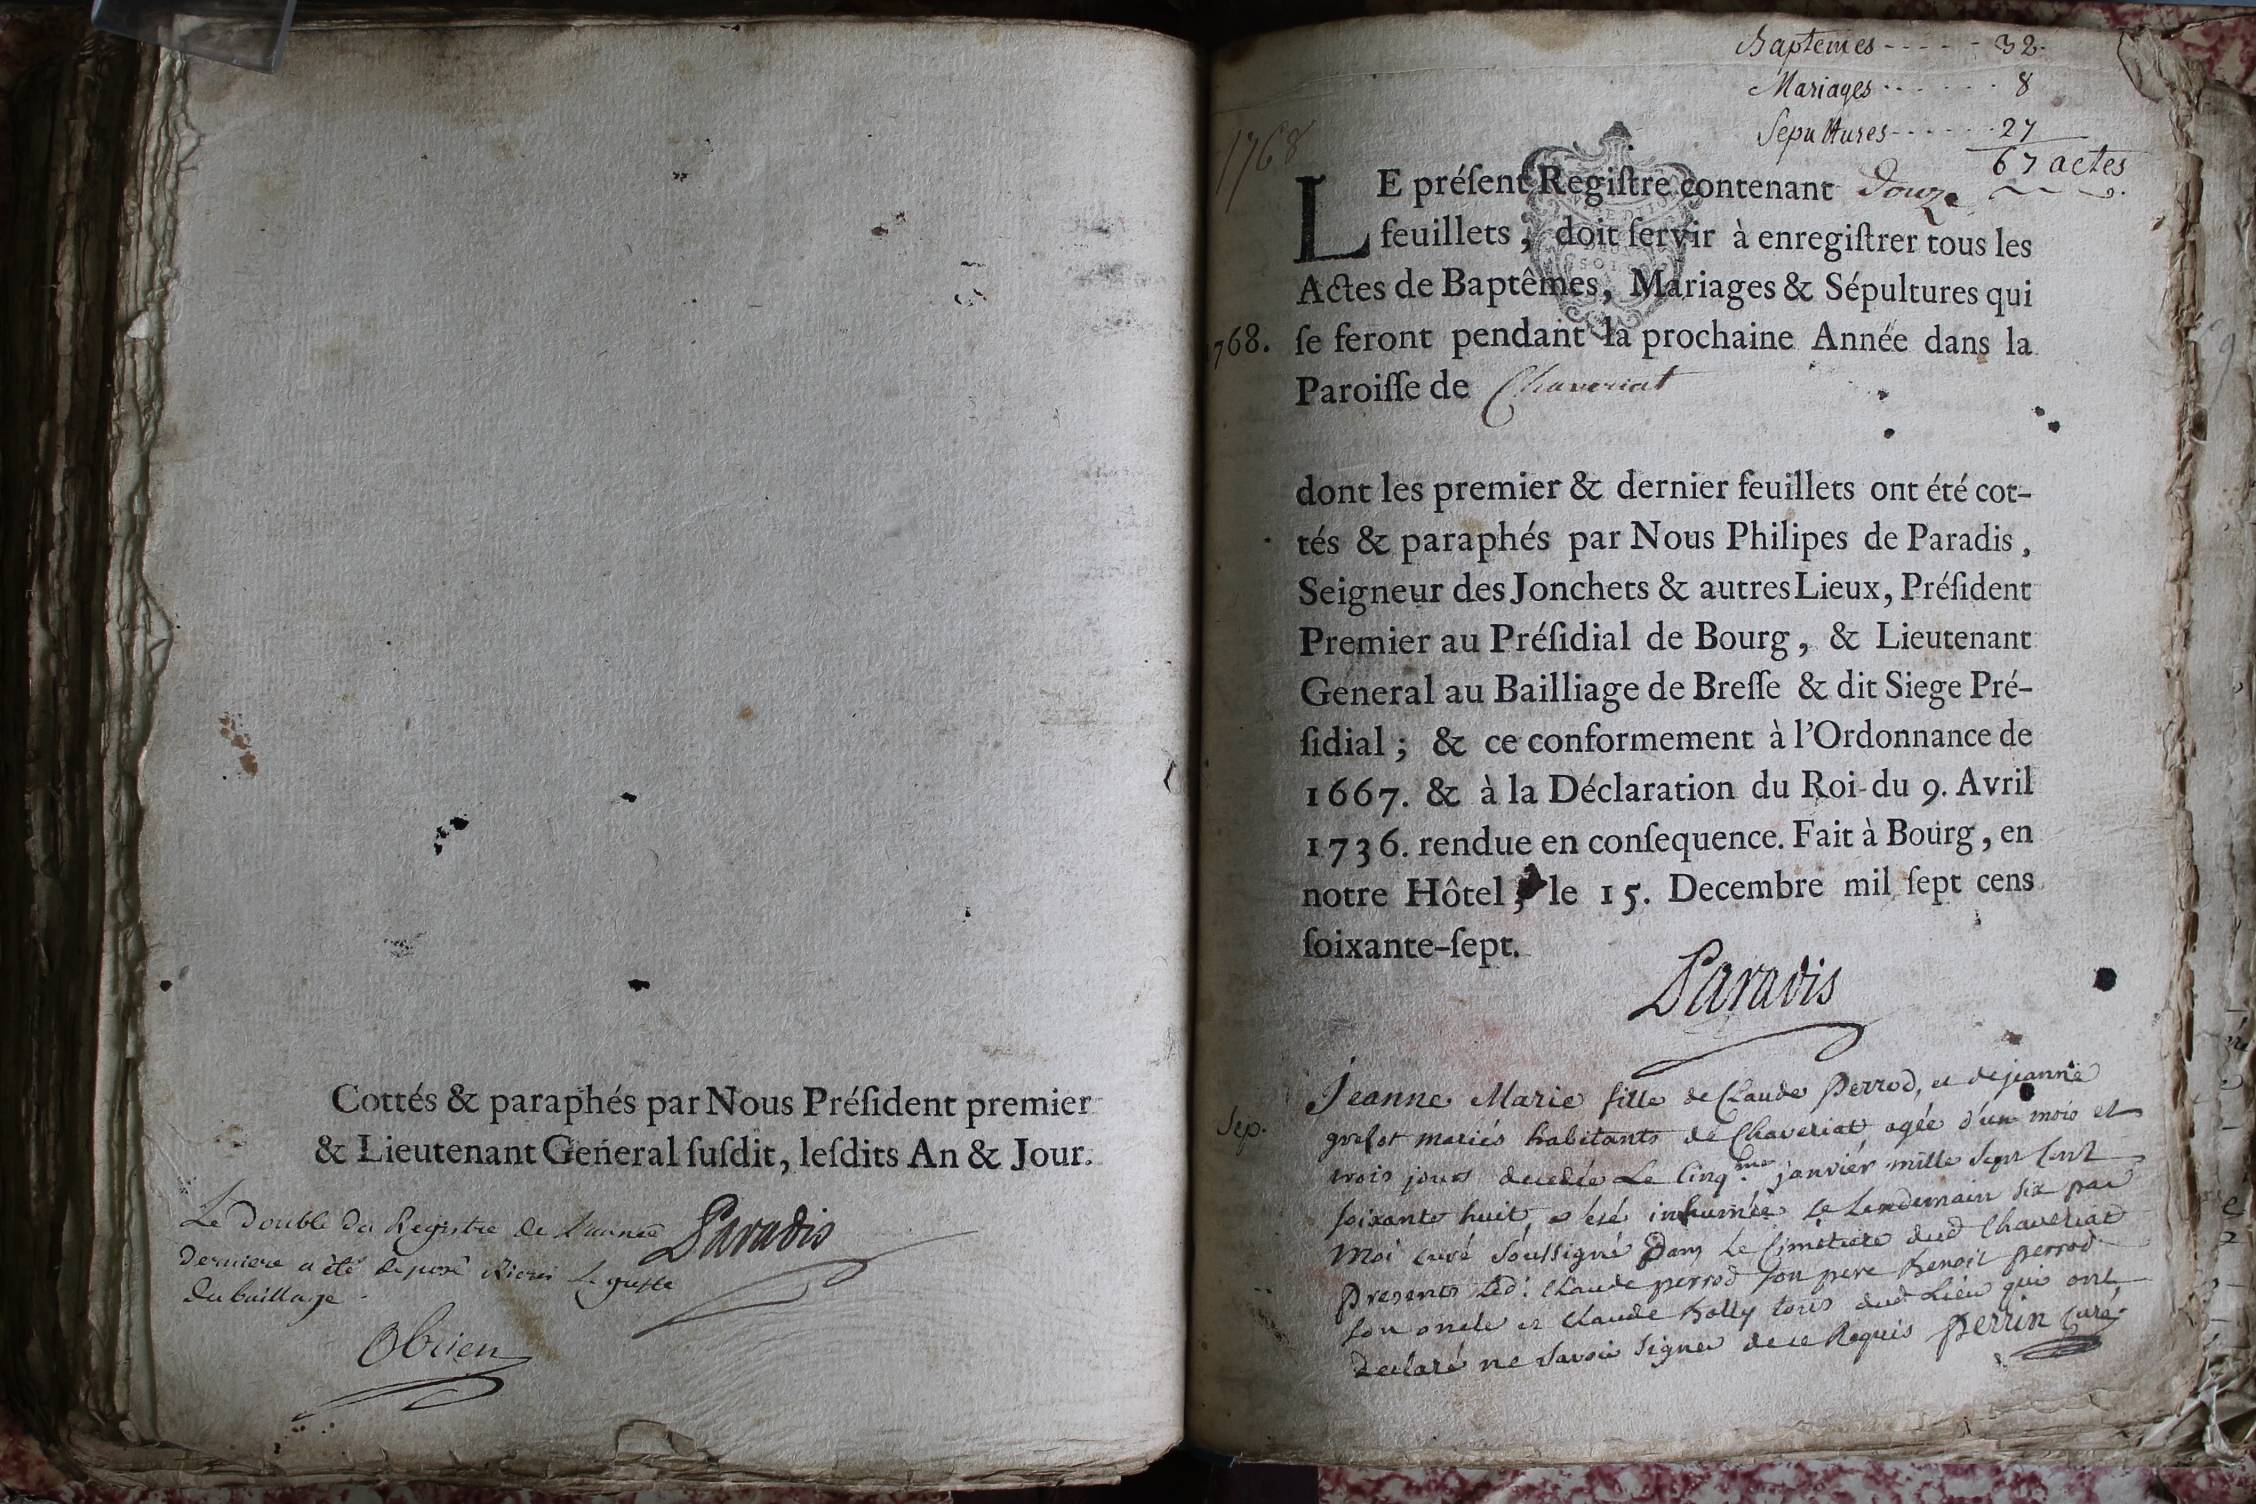 Cottés & paraphés par Nous Préſident premier
& Lieutenant General ſuſdit, leſdits An & Jour.
Le Double du Registre de L'année
derniere a été deposé rière Le greffe
du baillage
Paradis
Baptemes - - - - - 32.
Mariages - - - - - - 8
Sepultures - - - - - - 27
67 actes
1768
LE préſent Regiſtre contenant Douze
feuillets, doit ſervir à enregiſtrer tous les
Actes de Baptêmes, Mariages & Sépultures qui
1768. ſe feront pendant la prochaine Année dans la
Paroiſſe de Chaveriat
dont les premier & dernier feuillets ont été cot-
tés & paraphés par Nous Philipes de Paradis,
Seigneur des Jonchets & autres Lieux, Préſident
Premier au Préſidial de Bourg, & Lieutenant
General au Bailliage de Breſſe & dit Siege Pré-
ſidial; & ce conformement à l'Ordonnance de
1667. & à la Déclaration du Roi du 9. Avril
1736. rendue en conſequence. Fait à Bourg, en
notre Hôtel, le 15. Decembre mil ſept cens
ſoixante-ſept.
Paradis
Sep.
Jeanne Marie fille de Claude Perrod, et de jeanne
mariés habitants de Chaveriat agée d'un mois et
trois jours decedée Le Cinq.me janvier mille Sept Cent
soixante huit, a été inhumée le Lendemain six par
moi curé soussigné Dans Le Cimetiere dud Chaveriat
Presents Led: Claude perrod son pere Benoit perrod
son oncle et Claude tous dud Lieu qui ont
declaré ne savoir signer de ce Requis Perrin Curé